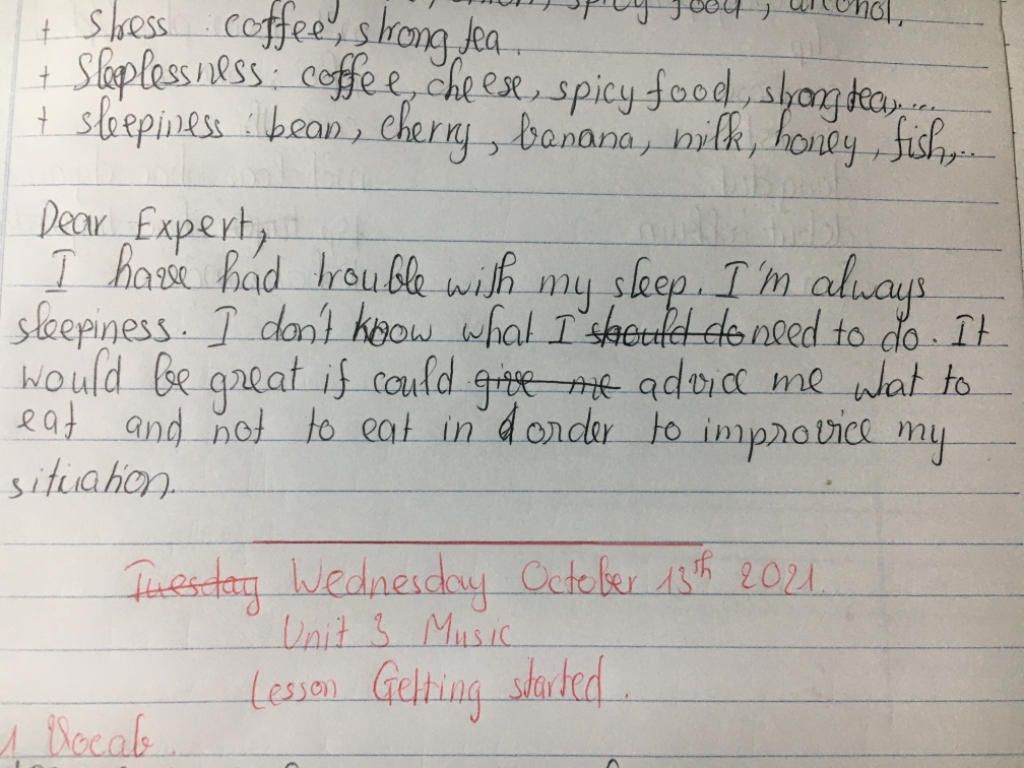 spicy food, alcohol.
+ Stress : coffee, strong tea.
+ Sleeplessness : coffee, cheese, spicy food, strong tea,....
+ sleepiness : bean, cherry, banana, milk, honey, fish,..
Dear Expert,
I have had trouble with my sleep. I'm always
sleepiness. I don't know what I should do need to do. It
would be great if could give me advice me what to
eat and not to eat in order to improvice my
situation.
Tuesday Wednesday October 13th 2021.
Unit 3 Music
Lesson Getting started.
1 Vocab.